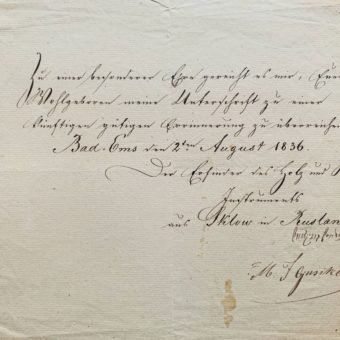 Zu einer besonderer Ehre gereicht es mir, Euer
Wohlgeboren meine Unterschrift zu einer
künftigen gütigen Erinnerung zu überreichen
Bad. Ems den 2ten August 1836.
Der Erfinder des Holz und
Instruments
aus Sklow in Rusland
M. J Gusiko